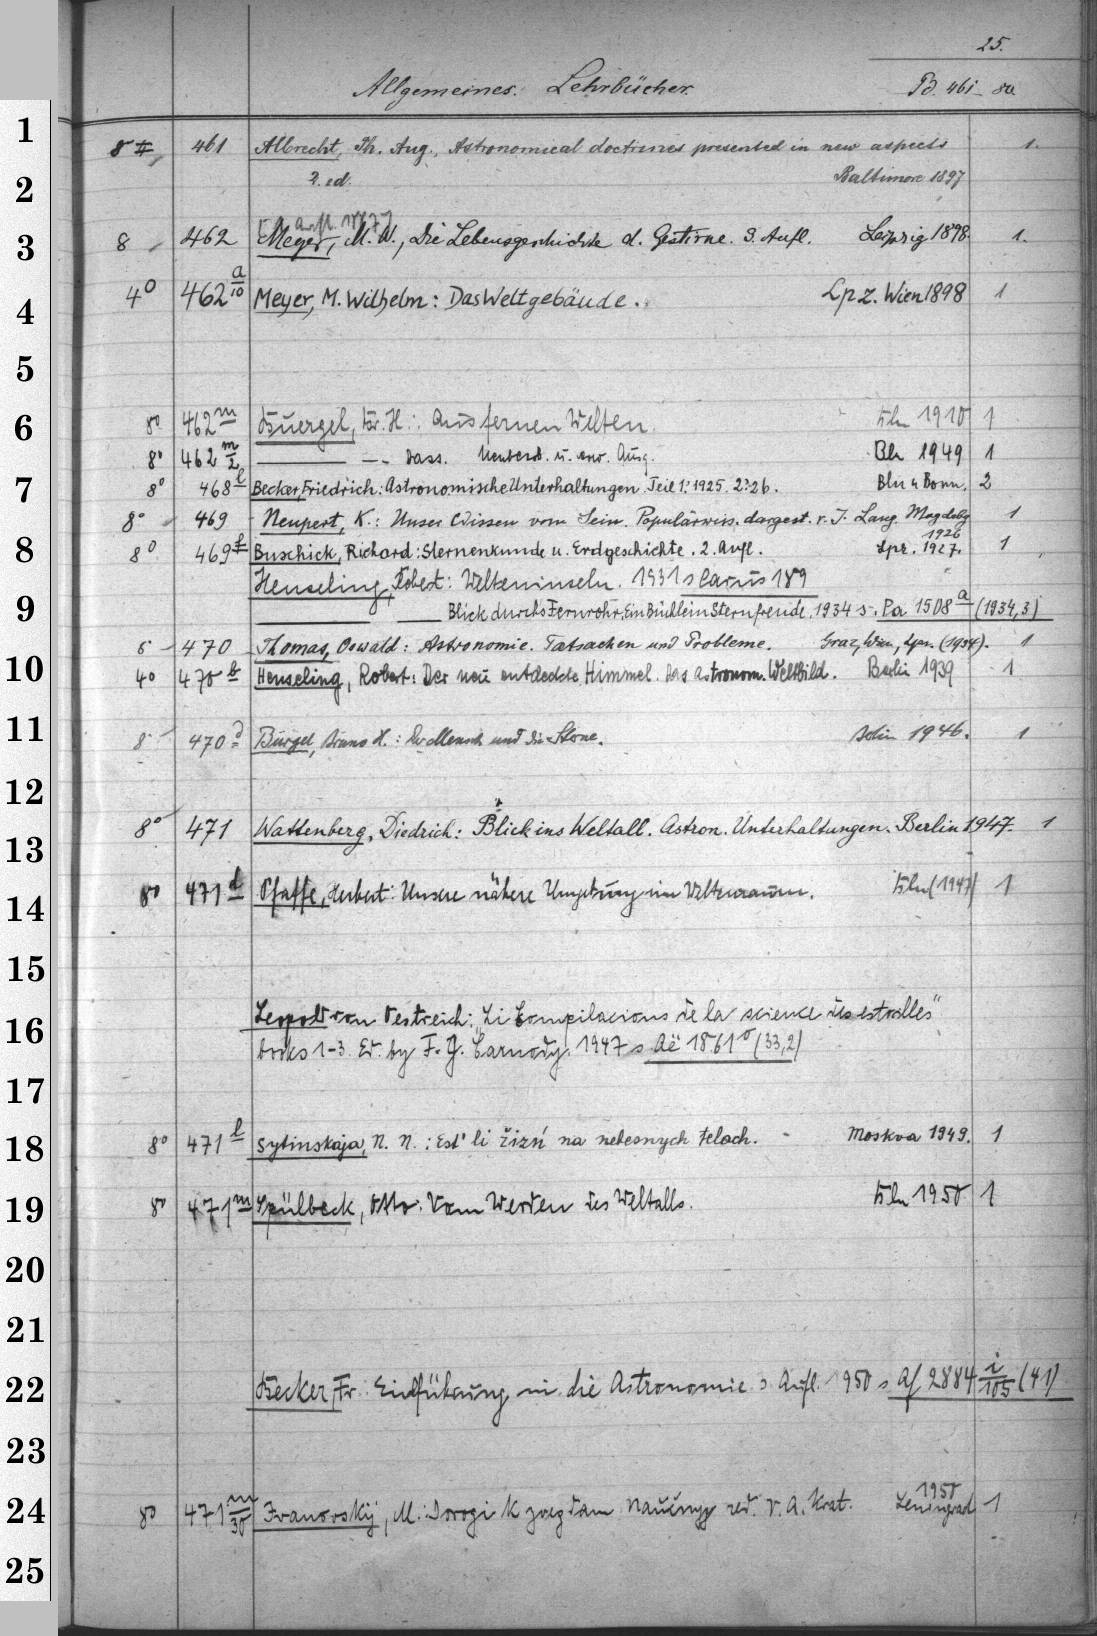 25.
Allgemeines. Lehrbücher. Pd. 461-
1 8 461 Albrecht, Th. Aug., Astronomical doctrines presented in new aspects 1.
2 2. ed. Baltimore 1897
[Aufl. 1877]
3 8 462 Meyer, M. W., Die Lebensgeschichte d. Gestirne. 3. Aufl. Leipzig 1898. 1.
4 4° 462 a/10 Meyer, M. Wilhelm: Das Weltgebäude. Lpz. Wien 1898 1
5
6 8° 462 m Buergel, Br. H.: Aus fernen Welten. Bln 1910 1
8° 462 m/2 — — Dass. Neubearb. u. erw. Ausg. Bln 1949 1
7 8° 468 l Becker, Friedrich: Astronomische Unterhaltungen. Teil 1: 1925. 2: 26. Bln u Bonn. 2
8° 469 Neupert, K.: Unser Wissen vom Sein. Populärwiss. dargest. v. J. Lang. Magdebg 1926 1
8 8° 469 f Buschick, Richard: Sternenkunde u. Erdgeschichte. 2. Aufl. Lpz. 1927. 1
Henseling, Robert: Welteninseln. 1931 s Carus 189
9 — Blick durchs Fernrohr, Ein Büchlein Sternfreude. 1934 s. Pa 1508 a (1934,3)
470 Thomas, Oswald: Astronomie. Tatsachen und Probleme. Graz, Wien, Lpz. (1934). 1
10 4° 470 b Henseling, Robert: Der neu entdeckte Himmel. Das astronom. Weltbild. Berlin 1939 1
11 8 470 d Bürgel, Bruno H.: Der Mensch und die Sterne. Berlin 1946. 1
12
13 8° 471 Wattenberg, Diedrich: Blick ins Weltall. Astron. Unterhaltungen. Berlin 1947. 1
14 8° 471 d Pfaffe, Herbert: Unsere nähere Umgebung im Weltenraum. Bln (1947) 1
15
16 Leopold von Oestreich: "Li Compilacions de la science des estoilles"
books 1-3. Ed. by F. J. Carmody. 1947 s Aë 1861 o (33,2)
17
18 8° 471 l Sytinskaja, N. N.: Est' li žizń na nebesnych telach. Moskva 1949. 1
19 8° 471 m Spülbeck, Otto: Vom Werden des Weltalls. Bln 1950 1
20
21
22 Becker, Fr.: Einführung in die Astronomie 3. Aufl. 1950 s Af 2884 i/105 (41)
23
24 8° 471 m/30 Ivanovskij, M.: Dorogi k zvezdam naučnyj red. V. A. Krat. Leningrad 1950 1
25